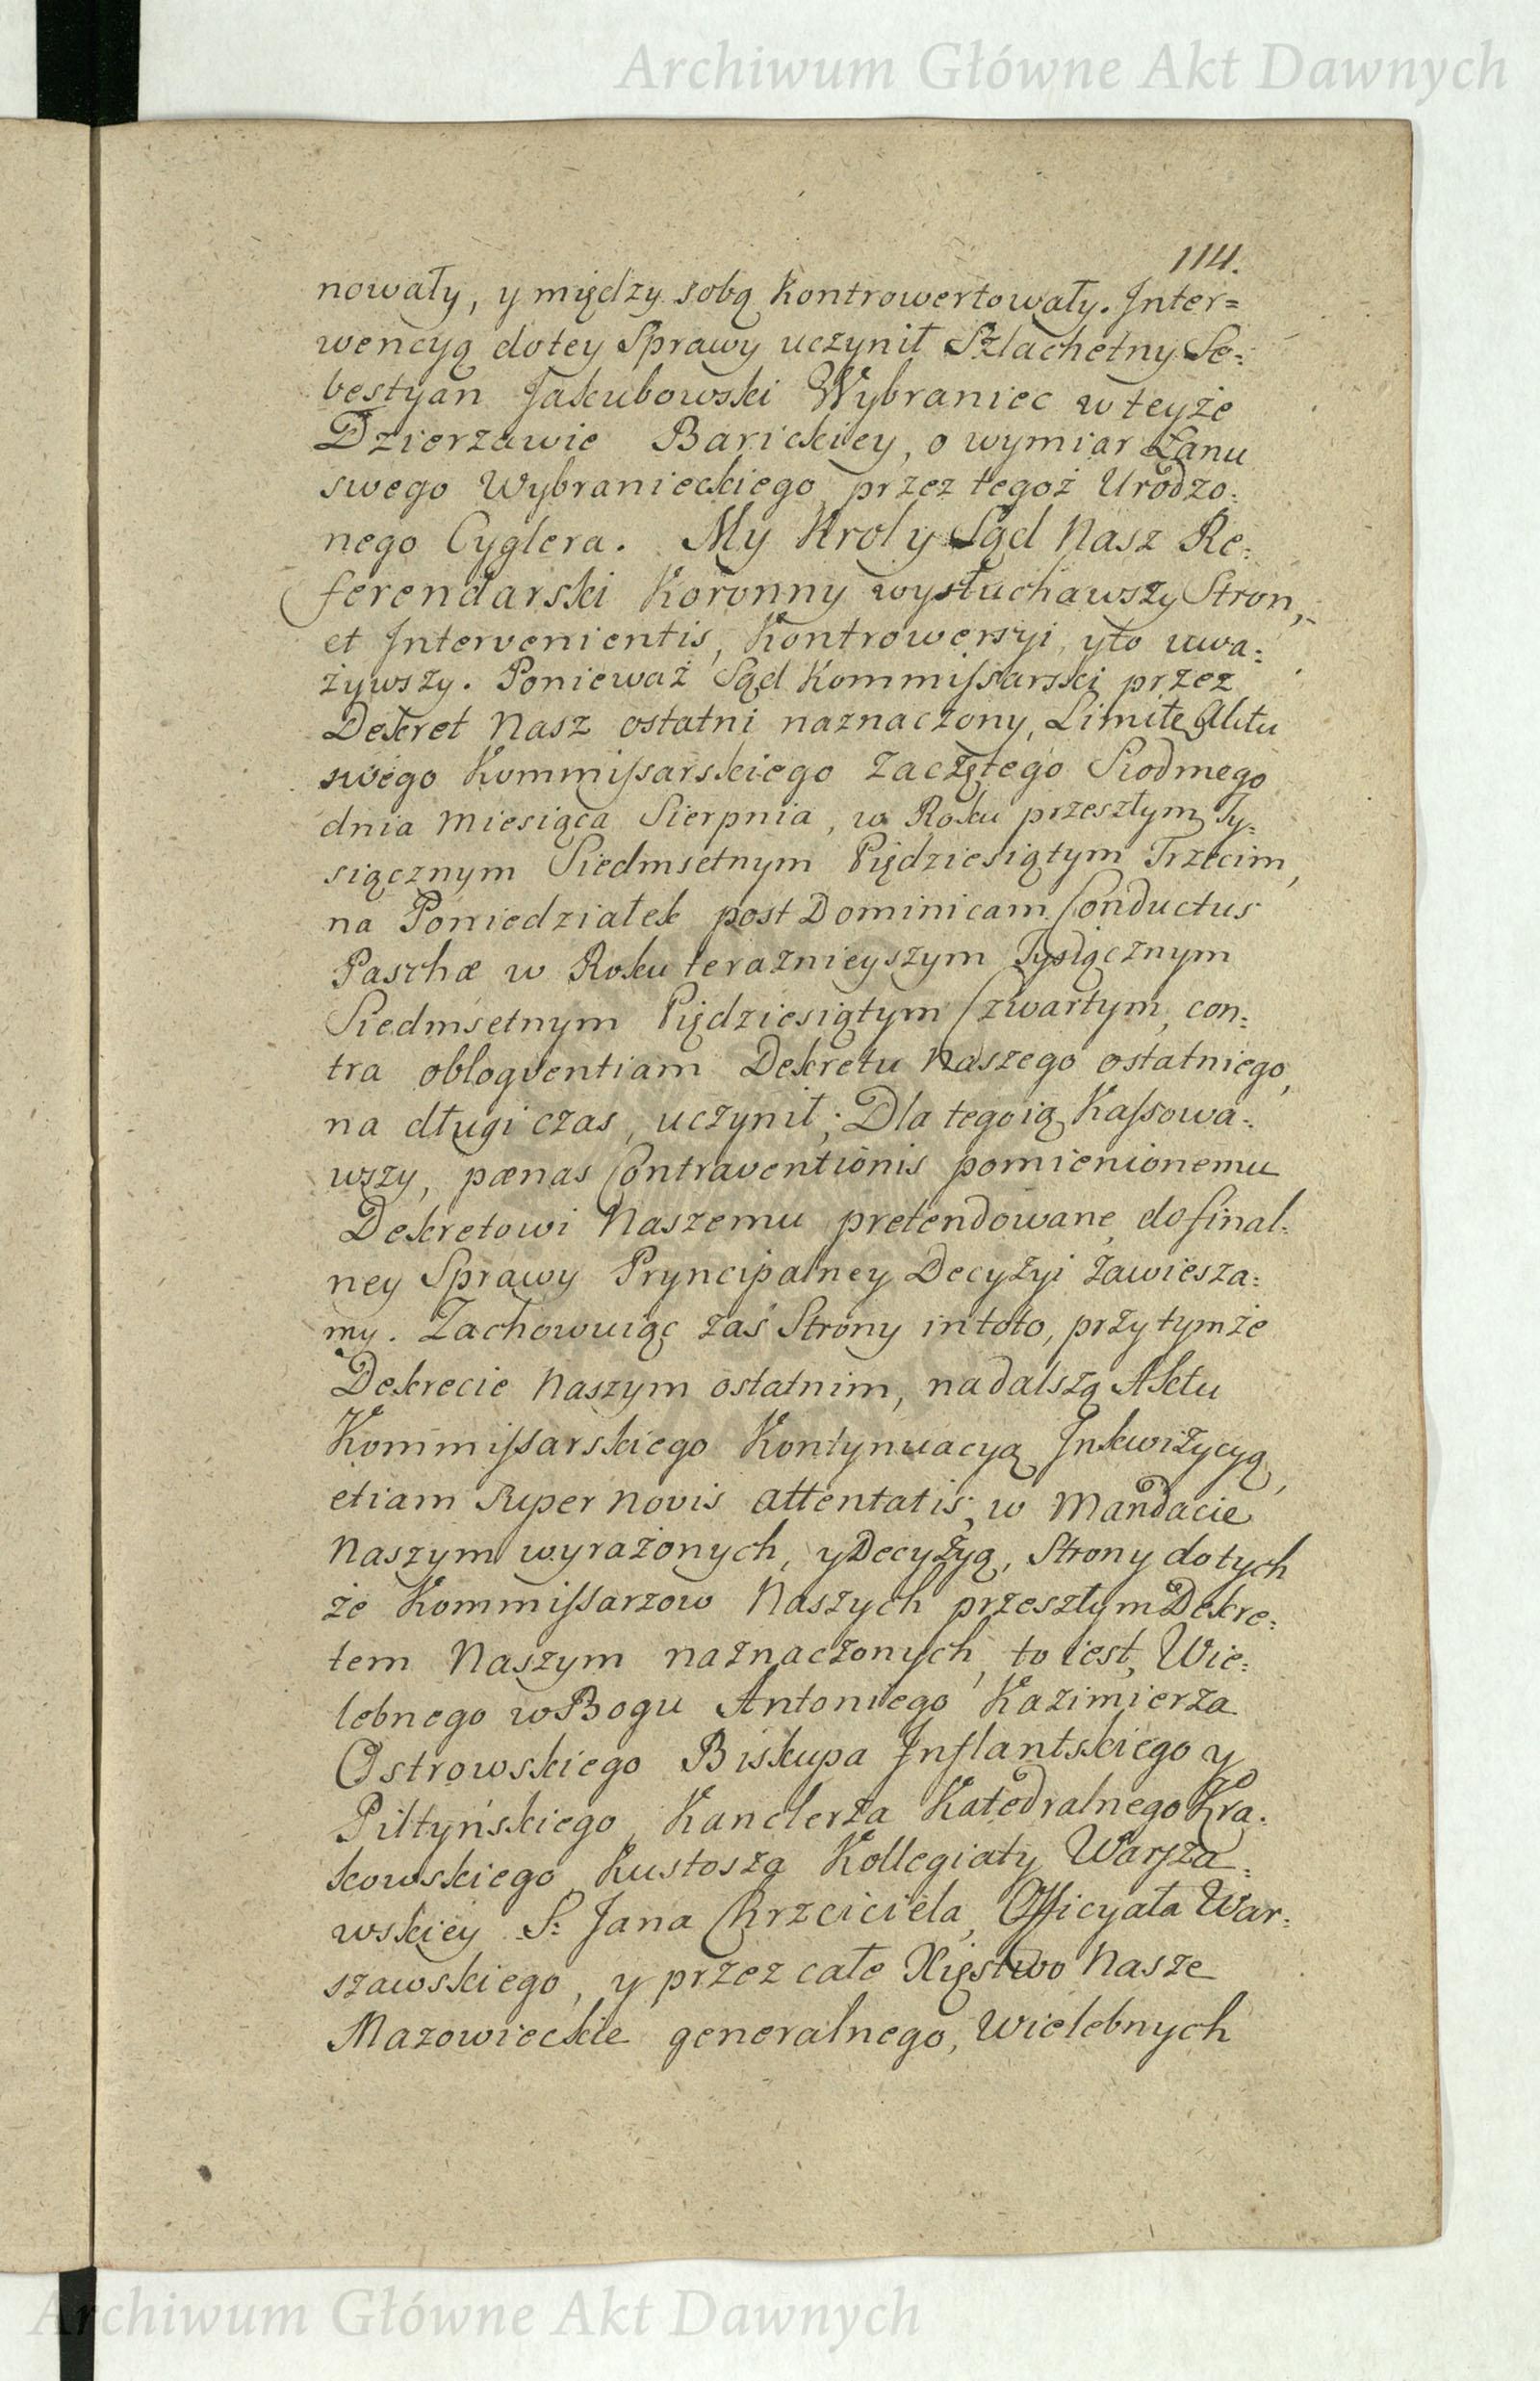 Archiwum Główne Akt Dawnych
114.
nowały, y między sobą kontrowertowały. Inter=
wencyą do tey Sprawy uczynił Szlachetny Se=
bestyan Jakubowski Wybraniec w teyże
Dzierzawie Barickiey, o wymiar Łanu
swego Wybranieckiego przez tegoż Urodzo=
nego Cyglera. My Krol y Sąd Nasz Re=
ferendarski Koronny wysłuchawszy Stron,
et Intervenientis, Kontrowersyi, y to uwa=
żywszy. Ponieważ Sąd Kommissarski przez
Dekret Nasz ostatni naznaczony, Limitę Aktu
swego Kommissarskiego Zaczętego Siodmego
dnia Miesiąca Sierpnia, w Roku przeszłym Ty=
siącznym Siedmsetnym Piędziesiątym Trzecim,
na Poniedziałek post Dominicam Conductus
Paschæ w Roku teraznieyszym Tysiącznym
Siedmsetnym Piędziesiątym Czwartym, con=
tra obloqventiam Dekretu Naszego ostatniego,
na długi czas, uczynił; Dla tego ią Kassowa=
wszy, pœnas Contraventionis pomienionemu
Dekretowi Naszemu pretendowane, do final=
ney Sprawy Pryncipalney Decyzyi zawiesza=
my. Zachowuiąc zaś Strony in toto, przy tymże
Dekrecie Naszym ostatnim, na dalszą Aktu
Kommissarskiego Kontynuacyą Inkwizycyą,
etiam super novis attentatis, w Mandacie
Naszym wyrażonych, y Decyzyą, Strony do tych
że Kommissarzow Naszych przeszłym Dekre=
tem Naszym naznaczonych, to iest, Wie=
lebnego w Bogu Antoniego Kazimierza
Ostrowskiego Biskupa Inflantskiego y
Piltyńskiego, Kanclerza Katedralnego Kra=
kowskiego Kustosza Kollegiaty Warsza=
wskiey S: Jana Chrzciciela, Officyała War=
szawskiego, y przez całe Xięstwo Nasze
Mazowieckie generalnego, Wielebnych
Archiwum Główne Akt Dawnych